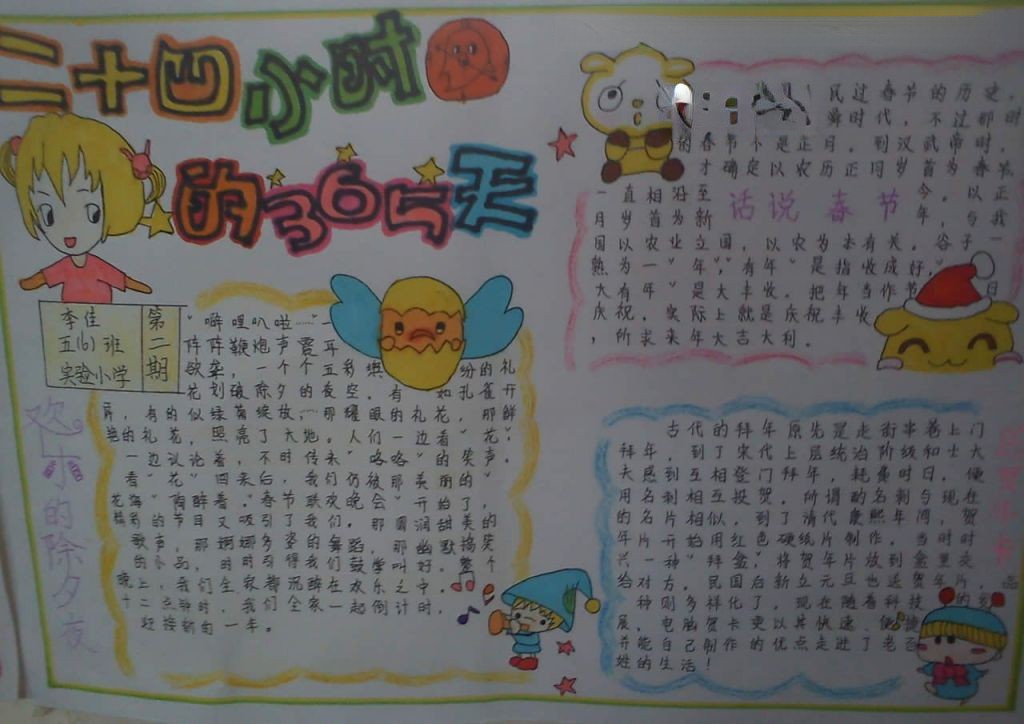 二十四小时
的365天
李佳
五(6)班
实验小学
第二期
欢乐的除夕夜
“噼哩叭啦……”一
阵阵鞭炮声震耳
欲聋，一个个五彩缤纷的礼
花划破除夕的夜空。有如孔雀开
屏，有的似绿菊绽放，…那耀眼的礼花，那鲜
艳的礼花，照亮了大地。人们一边看“花”，
一边议论着，不时传来“咯咯”的笑声。
看“花”回来后，我们仍被那美丽的“
花海”陶醉着。“春节联欢晚会”开始了，
精彩的节目又吸引了我们。那圆润甜美的
歌声，那婀娜多姿的舞蹈，那幽默搞笑
的小品，时时引得我们鼓掌叫好。整个
晚上，我们全家都沉醉在欢乐之中。
十二点钟时，我们全家一起倒计时，
迎接新的一年。
民过春节的历史。
舜时代，不过那时
的春节不是正月。到汉武帝时，
才确定以农历正月岁首为春节，
一直相沿至今。以正
月岁首为新年，与我
话说春节
国以农业立国，以农为本有关。谷子一
熟为一“年”，“有年”是指收成好，“
大有年”是大丰收。把年当作节日
庆祝，实际上就是庆祝丰收
，所求来年大吉大利。
古代的拜年原先是走街串巷上门
拜年，到了宋代上层统治阶级和士大
夫感到互相登门拜年，耗费时日，便
用名刺相互投贺。所谓的名刺与现在
的名片相似，到了清代康熙年间，贺
年片开始用红色硬纸片制作。当时时
兴一种“拜盒”，将贺年片放到盒里交
给对方。民国后新立元旦也送贺年片，品
种则多样化了，现在随着科技的发
展，电脑贺卡更以其快速、便捷
并能自己制作的优点走进了老百
姓的生活！